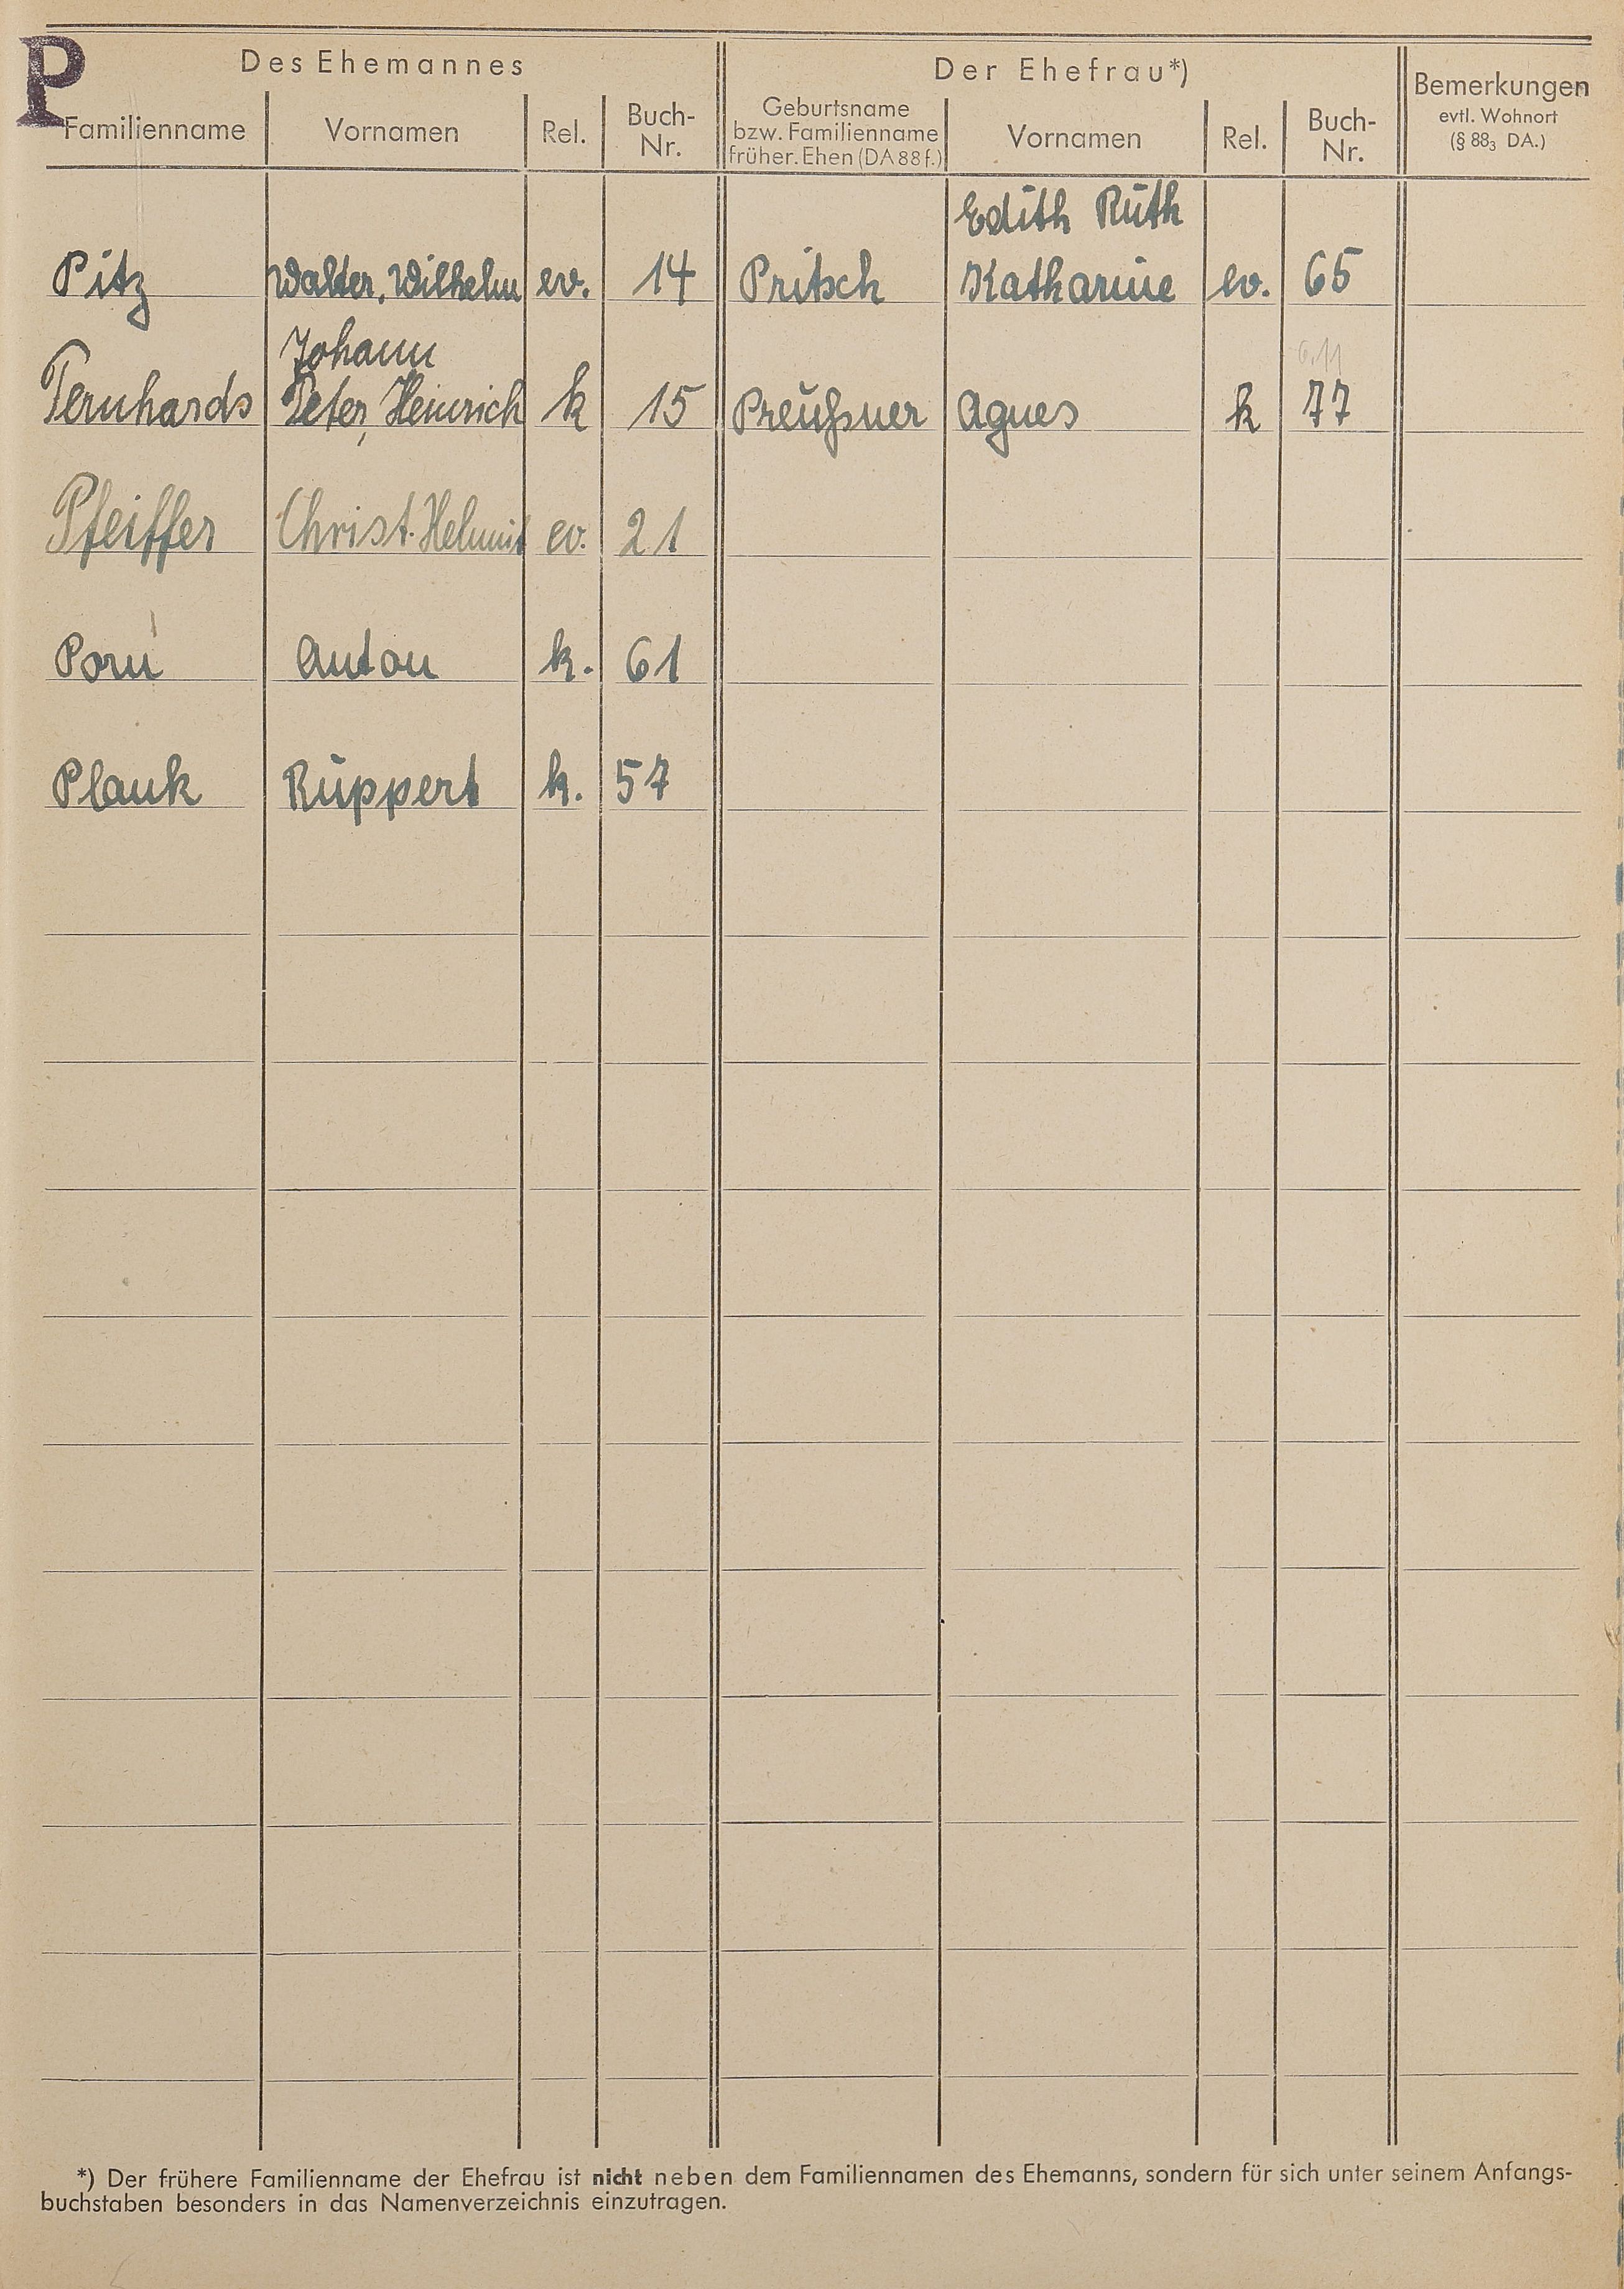 P
Des Ehemannes
Der Ehefrau*)
Familienname
Vornamen
Rel.
Buch-
Nr.
Geburtsname
bzw. Familienname
früher. Ehen (DA 88 f.)
Vornamen
Rel.
Buch-
Nr.
Bemerkungen
evtl. Wohnort
(§ 88₃ DA.)
Edith Ruth
Pitz Walter, Wilhelm ev. 14 Pritsch Katharine ev. 65
Johann
Pernhards Peter, Heinrich k 15 Preußner Agnes k 77
Pfeiffer Christ. Helmut ev. 21
Porn Anton k. 61
Plank Ruppert k. 57
*) Der frühere Familienname der Ehefrau ist nicht neben dem Familiennamen des Ehemanns, sondern für sich unter seinem Anfangs-
buchstaben besonders in das Namenverzeichnis einzutragen.